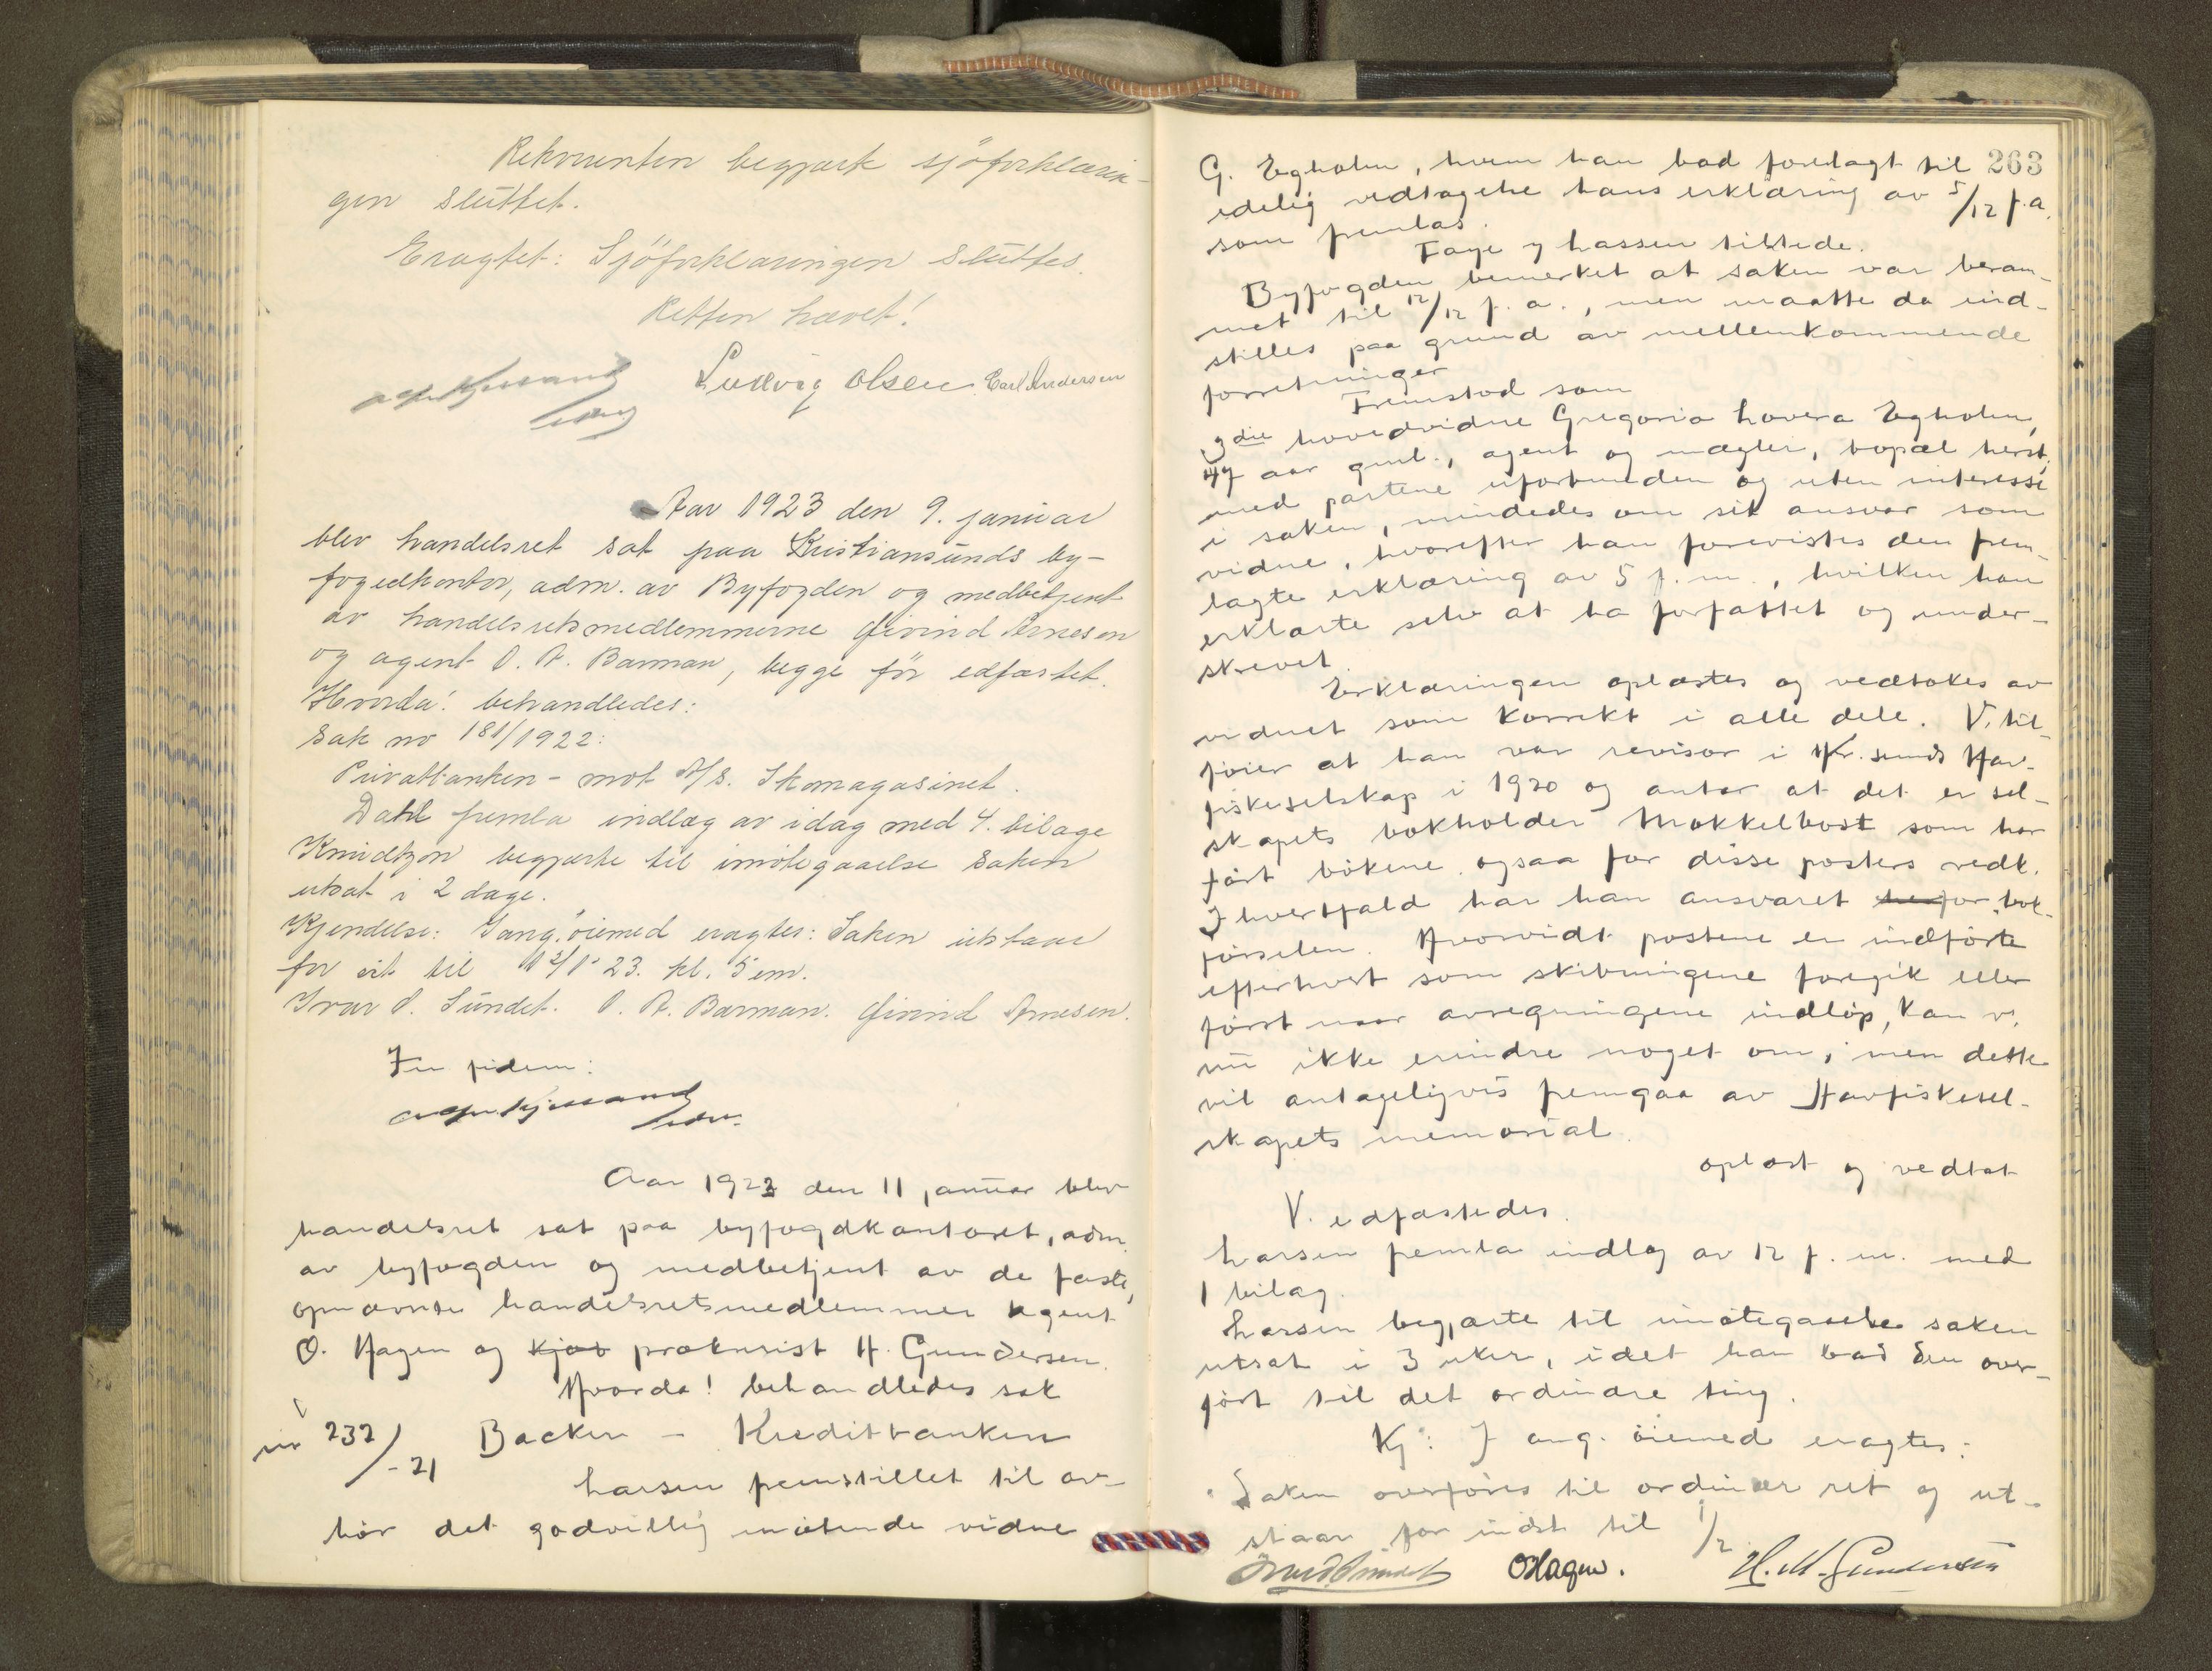 Rekvirenten begjærte sjöforklarin-
gen sluttet.
Eragtet: Sjöforklaringen sluttes.
Retten hævet!
Ludvig Olsen Carl Andersen
Aar 1923 den 9. januar
blev handelsret sat paa Kristiansunds by-
fogedkontor, adm. av Byfogden og medbetjent
av handelsretsmedlemmerne Øivind Arnesen
og agent O. A. Barman, begge för edfæstet.
Hvorda! behandledes:
Sak no 181/1922:
Privatbanken - mot A/S. Skomagasinet.
Dahl fremla indlæg av idag med 4. bilage
Knudtzon begjærte til imötegaaelse saken
utsat i 2 dage.
Kjendelse: I ang. öiemed eragtes: Saken utstaar
for sit til 12/1 23. kl. 5 em.
Ivar S. Sundet. O. A. Barman. Øivind Arnesen.
In fidem:
Aar 1923 den 11 januar blev
handelsret sat paa byfogdkontoret, adm.
av byfogden og medbetjent av de faste,
opnævnte handelsretsmedlemmer agent
O. Hagen og kjøb prokurist H. Gundersen.
Hvorda! behandledes sak
nr 232/-21 Backer - Kreditbanken
Larsen fremstillet til av-
hör det godvillig mötende vidne
263
G. Egholm, hvem han bad forelagt til
edelig vedtagelse hans erklæring av 5/12 f.a.
som fremlas.
Faye og Larsen tilstede.
Byfogden bemerket at saken var beram-
met til 12/12 f. a., men maatte da ind-
stilles paa grund av mellemkommende
forretninger
Fremstod som
3die hovedvidne Gregorio Lovera Egholm,
47 aar gml., agent og mægler, bopæl herst,
med partene uforbunden og uten interesse
i saken, mindedes om sit ansvar som
vidne, hvorefter han forevistes den frem-
lagte erklæring av 5 f. m., hvilken han
erklærte selv at ha forfattet og under-
skrevet.
Erklæringen oplæstes og vedtokes av
vidnet som korrekt i alle dele. V. til-
föier at han var revisor i Kr.sunds Hav-
fiskeselskap i 1920 og antar at det er sel-
skapets bokholder Mokkelbost som har
fört bökene ogsaa for disse posters vedk.
I hvertfald har han ansvaret for bok-
förselen. Hvorvidt postene er indförte
efterhvert som skibningene foregik eller
först naar avregningene indlöp, kan v.
nu ikke erindre noget om; men dette
vil antageligvis fremgaa av Havfiskesel-
skapets memorial.
oplæst og vedtat
V. edfæstedes.
Larsen fremla indlæg av 12 f. m. med
1 bilag.
Larsen begjærte til imötegaaelse saken
utsat i 3 uker, idet han bad den over-
fört til det ordinære ting.
Kj: I ang. öiemed eragtes:
Saken overföres til ordinær ret og ut-
staar for indst til 1/2
O Hagen. H. M. Gundersen